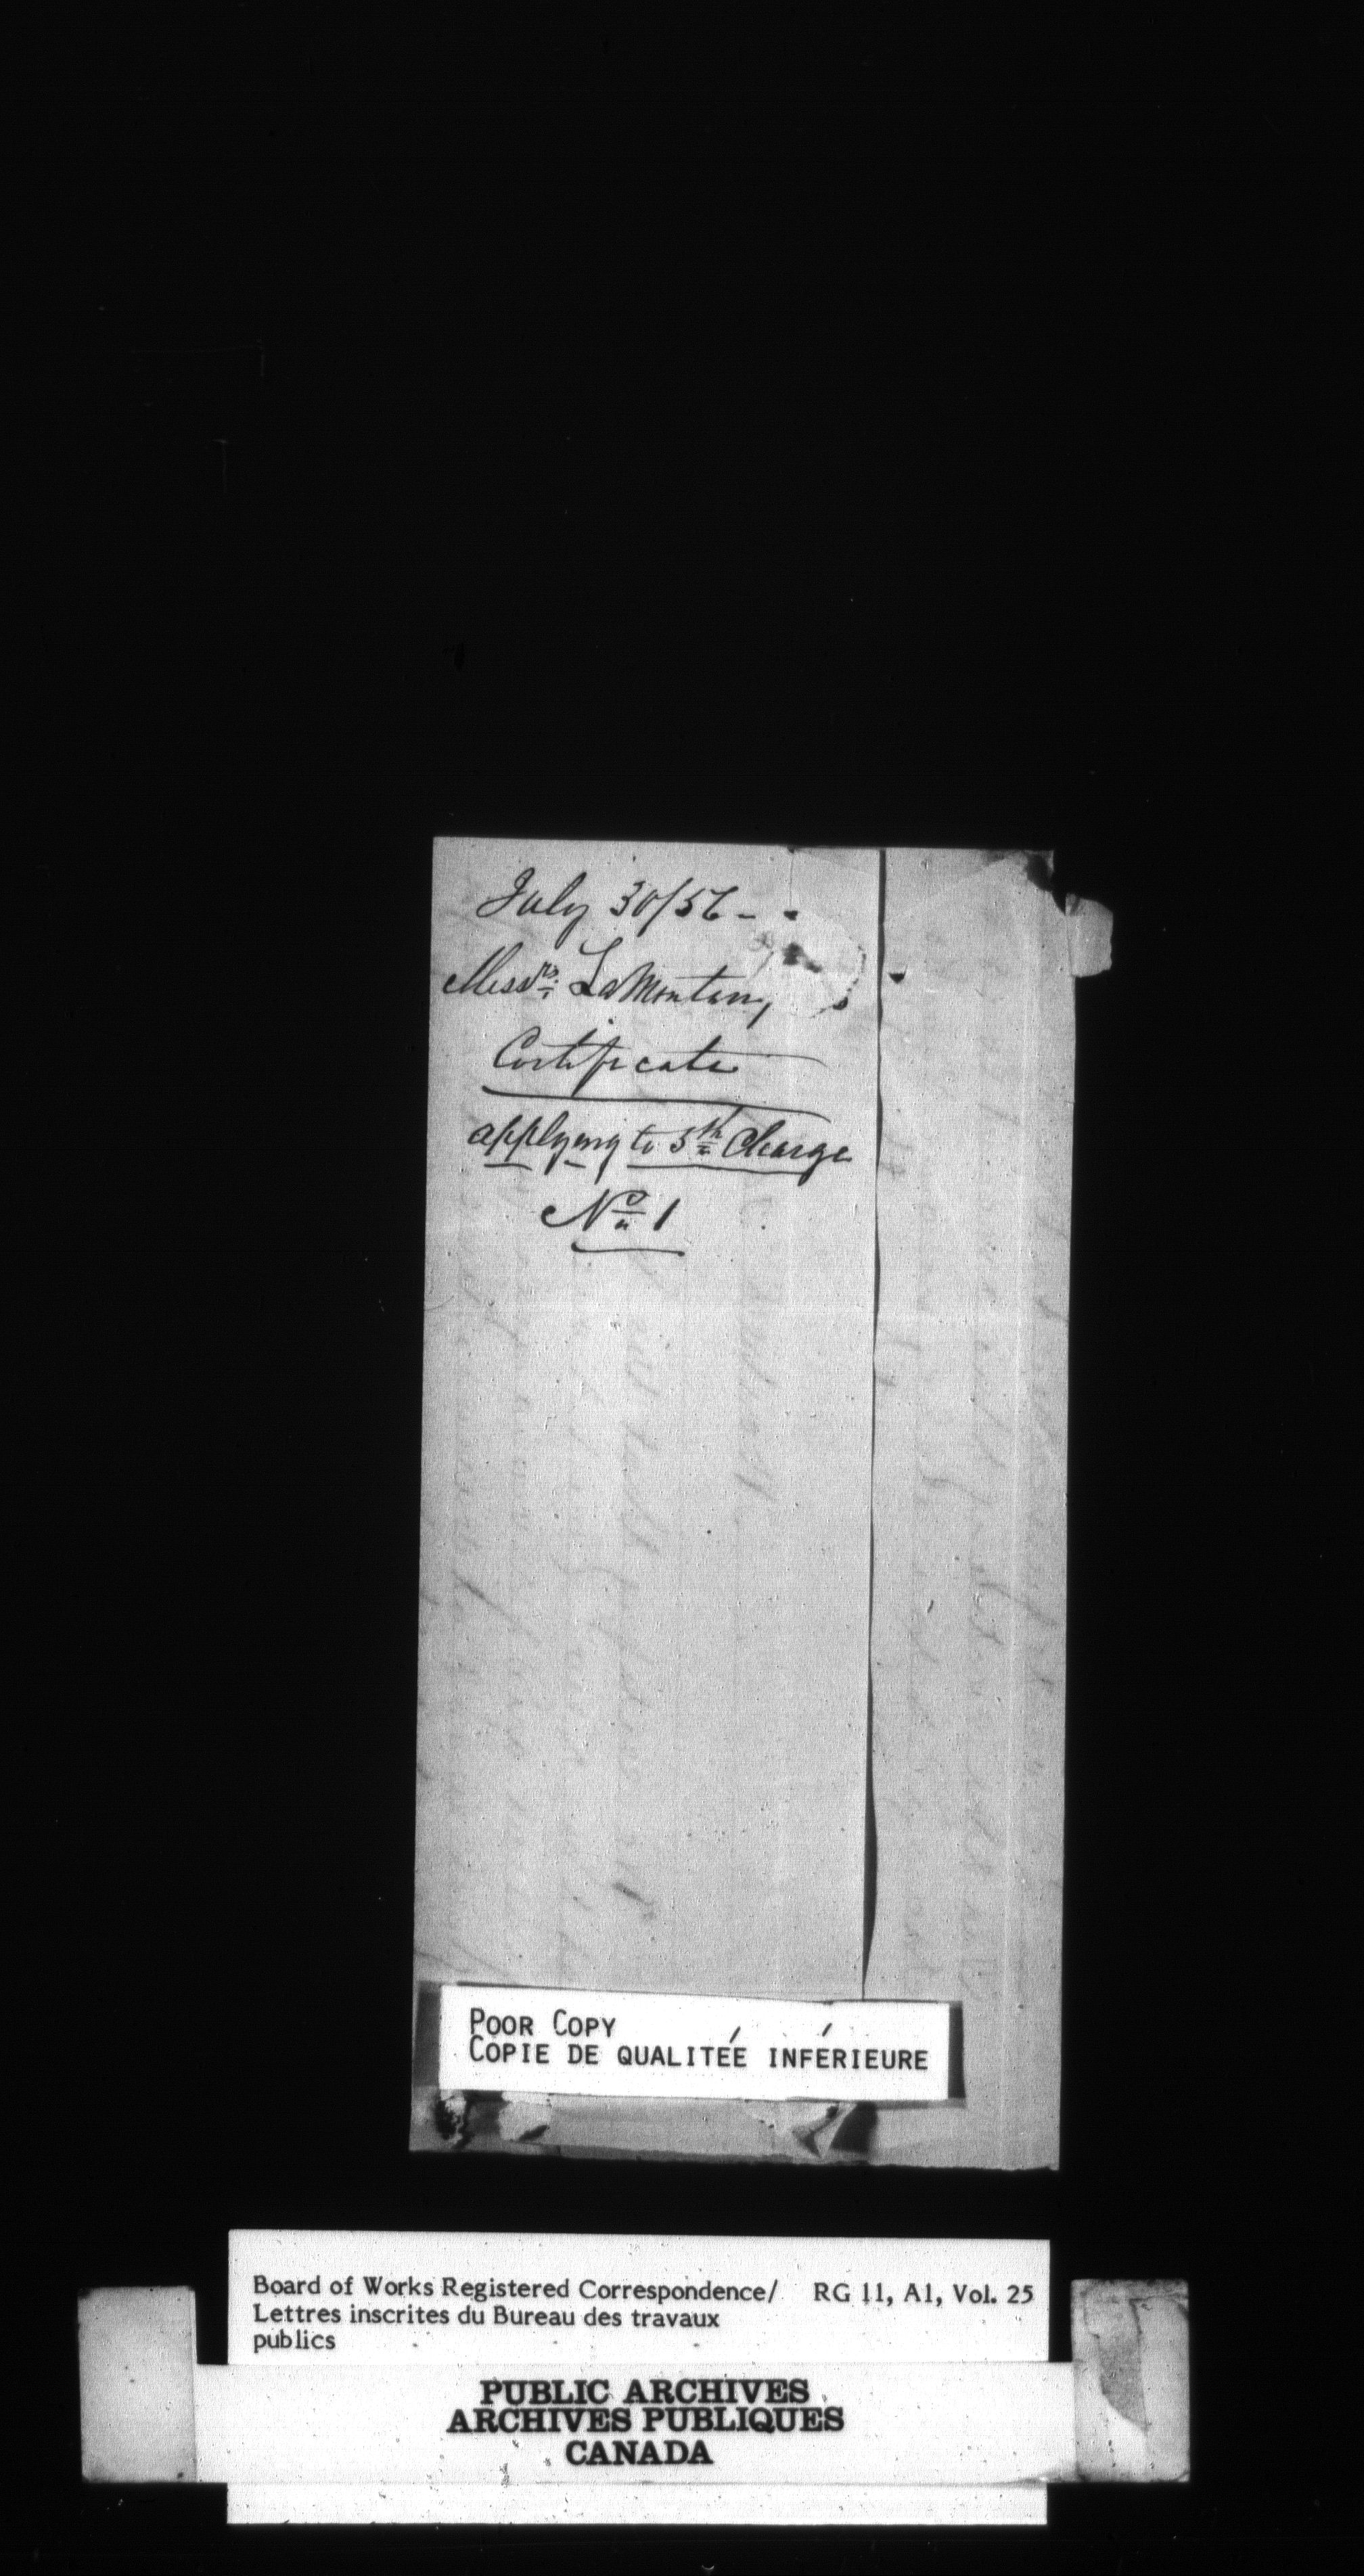 July 30/56 -
Messrs. LaMontany
Certificate
applying to 5th Charge
No. 1
POOR COPY
COPIE DE QUALITÉE INFÉRIEURE
Board of Works Registered Correspondence/ RG 11, A1, Vol. 25
Lettres inscrites du Bureau des travaux
publics
PUBLIC ARCHIVES
ARCHIVES PUBLIQUES
CANADA